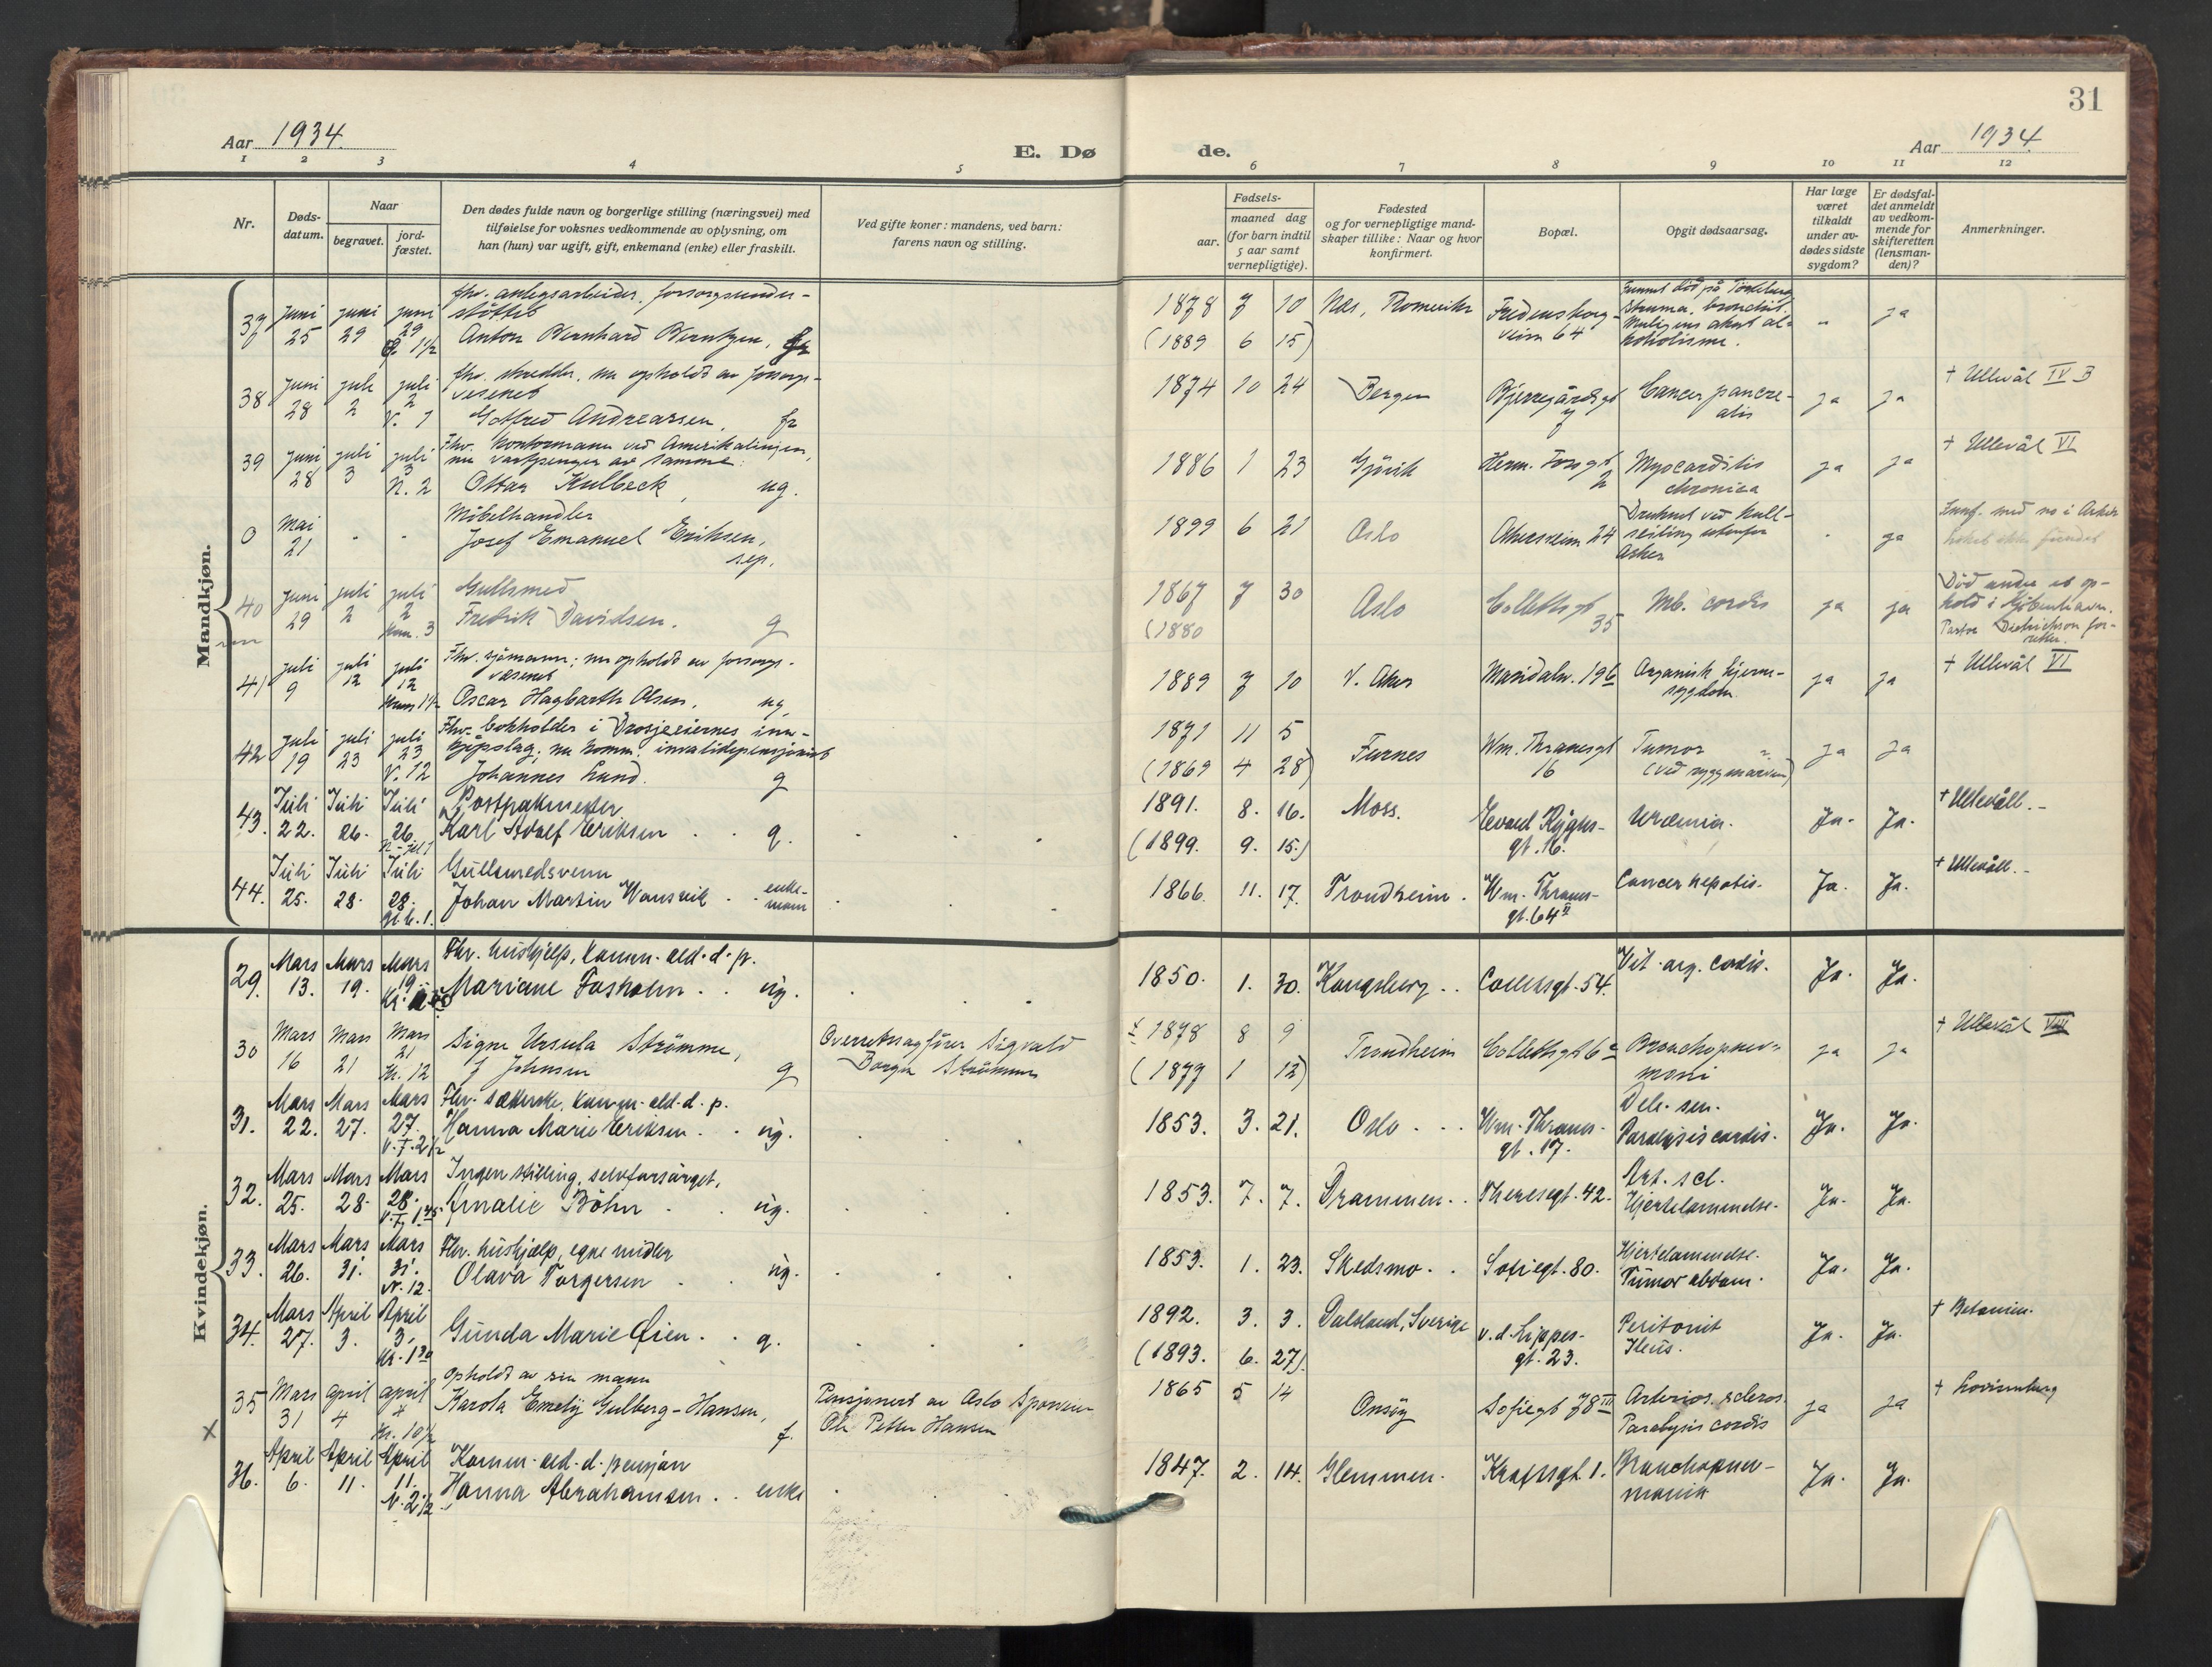 31
Aar 1934.
E. Dø
de.
Aar 1934.
1 2 3 4 5 6 7 8 9 10 11 12
Nr.
Døds-
datum.
Naar
begravet.
jord-
fæstet.
Den dødes fulde navn og borgerlige stilling (næringsvei) med
tilføielse for voksnes vedkommende av oplysning, om
han (hun) var ugift, gift, enkemand (enke) eller fraskilt.
Ved gifte koner: mandens, ved barn:
farens navn og stilling.
Fødsels-
aar.
maaned dag
(for barn indtil
5 aar samt
vernepligtige).
Fødested
og for vernepligtige mand-
skaper tillike: Naar og hvor
konfirmert.
Bopæl.
Opgit dødsaarsag.
Har læge
været
tilkaldt
under av-
dødes sidste
sygdom?
Er dødsfal-
det anmeldt
av vedkom-
mende for
skifteretten
(lensman-
den)?
Anmerkninger.
Mandkjøn.
37 Juni 25 juni 29 juni 29 1½
fhv. anlegsarbeider, forsorgsunder-
støttet
Anton Bernhard Berntzen,
1878 7 10 Nes, Romerike
(1889 6 15)
Fredensborg-
veien 64
Funnet død på
Struma, bronchit.
Muligens akut al-
koholisme.
ja
38 Juni 28 juli 2 juli 2 V. 1
fhv. skredder, nu opholdt av forsorgs-
vesenet
Gotfred Andreassen, fr
1874 10 24 Bergen Bjerregårdsgt
Cancer pancre-
atis
ja ja + Ullevål IV B
39 Juni 28 juli 3 juli 3 N. 2
Fhv. kontormann ved Amerikalinjen,
nu vartpenger av samme.
Ottar Kulbeck, ug.
1886 1 23 Gjøvik Herm. Fossgt 2
Myocarditis
chronica
ja ja + Ullevål VI
0 Mai 21 - -
Møbelhandler
Josef Emanuel Eriksen,
sep.
1899 6 21 Oslo Akersveien 24
Druknet ved kull-
seiling utenfor
Asker
- ja
40 Juni 29 juli 2 juli 2 3
Gullsmed
Fredrik Davidsen. g
1867 7 30 Oslo
(1880
Collettsgt
35
Mb. cordis ja ja
Død under et op-
hold i Kjøbenhavn.
Pastor Dietrichson for-
rettet.
41 juli 9 juli 12 juli 12 1½
Fhv. sjømann; nu opholdt av forsorgs-
vesenet
Oscar Hagbarth Olsen, ug
1889 7 10 V. Aker Maridalsv. 196
Organisk hjerne-
sygdom.
ja ja + Ullevål VI
42 juli 19 juli 23 juli 23 V. 12
Fhv. bokholder i Drosjeeiernes inn-
kjøpslag; nu komm. invalidepensjonist
Johannes Lund. g
1871 11 5 Furnes
(1869 4 28)
Wm. Thranesgt
16
Tumor
(ved ryggmarven)
ja ja
43. Juli 22. Juli 26. Juli 26.
Postpakmester
Karl Adolf Eriksen . . g.
1891. 8. 16. Moss.
(1899. 9. 15.)
Eevald Ryghs-
gt. 16.
Uræmia. Ja. Ja. + Ullevåll.-
44. Juli 25. Juli 28. Juli 28. 1.
Gullsmedsvenn
Johan Martin Wansvik . . enke-
mann
1866. 11. 17. Trondheim. Wm. Thranes-
gt. 64
Cancer hepatis. Ja. Ja. + Ullevåll.-
Kvindekjøn.
29. Mars 13. Mars 19. Mars 19.
Fhv. hushjelp, komm. ald. d. p.
Mariane Fosholm . . ug.
1850. 1. 30. Kongsberg . . Collettsgt. 54.
Vit. org. cordis. Ja. Ja.
30 Mars 16 Mars 21 Mars 21 Kr. 12
Signe Ursula Strømme,
f Johnsen g
Overrettssagfører Sigvald
Borgen Strømme
1878 8 9 Trondheim
(1877 1 12)
Collettsgt 6
Bronchopnev-
moni
ja ja + Ullevål VIII
31. Mars 22. Mars 27. Mars 27. V.F. 2½
Fhv. sætterske, komm. ald. d. p.
Hanna Marie Eriksen . . ug.
1853. 3. 21. Oslo . . . Wm. Thranes-
gt. 17.
Deb. sen.
Paralysis cordis. Ja. Ja.
32. Mars 25. Mars 28. Mars 28.
Ingen stilling, selvforsørget,
Amalie Böhn . . ug.
1853. 7. 7. Drammen. . Theresegt. 42.
Art. scl.
Hjertelammelse. Ja. Ja.
33. Mars 26. Mars 31. Mars 31. N. 12.
Fhv. hushjælp, egne midler
Olava Torgersen . . ug.
1853. 1. 23. Skedsmo. . Sofiegt. 80.
Hjertelammelse.
Tumor abdom. Ja. Ja.
34. Mars 27. April 3. April 3. Kr. 1 30
Gunda Marie Øien. . g.
1892. 3. 3. Dalsland, Sverige
(1893. 6. 27).
v. d. Lippes-
gt. 23.
Peritonit
Ileus. Ja. Ja. + Betanien.
x 35 Mars 31 april 4 april 4 Kr. 10½
opholdt av sin mann
Karola Emely Gulberg-Hansen,
f.
Pensjonert av Oslo Sporveier
Ole Petter Hansen
1865 5 14 Onsøy Sofiegt 78 III
Arterios. scleros.
Paralysis cordis ja ja + Lovisenberg
36. April 6. April 11. April 11. N. 2½
Komm. ald. d. pensjon
Hanna Abrahamsen . . enke
1847. 2. 14. Glemmen. Kraftsgt. 1.
Bronchopnev-
monia Ja. Ja.